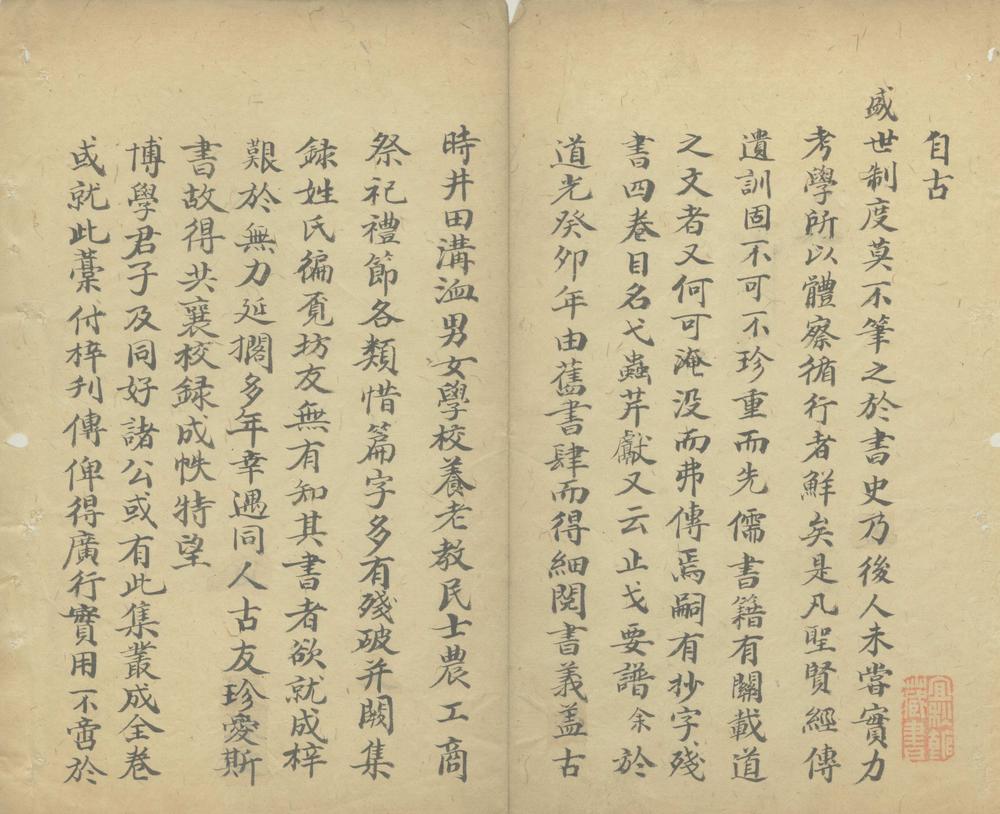 自古
盛世制度莫不筆之於書史乃後人未嘗實力
考學所以體察循行者鮮矣是凡聖賢經傳
遺訓固不可不珍重而先儒書籍有關載道
之文者又何可淹没而弗傳焉嗣有抄字殘
書四卷目名弋蟲芹獻又云止戈要譜余於
道光癸夘年由舊書肆而得細閱書義盖古
時井田溝洫男女學校養老教民士農工商
祭祀禮節各類惜篇字多有殘破并闕集
録姓氏徧覔坊友無有知其書者欲就成梓
艱於無力延擱多年幸遇同人古友珍愛斯
書故得共襄校録成帙特望
博學君子及同好諸公或有此集叢成全卷
或就此藁付梓刋傳俾得廣行實用不啻於
藏書